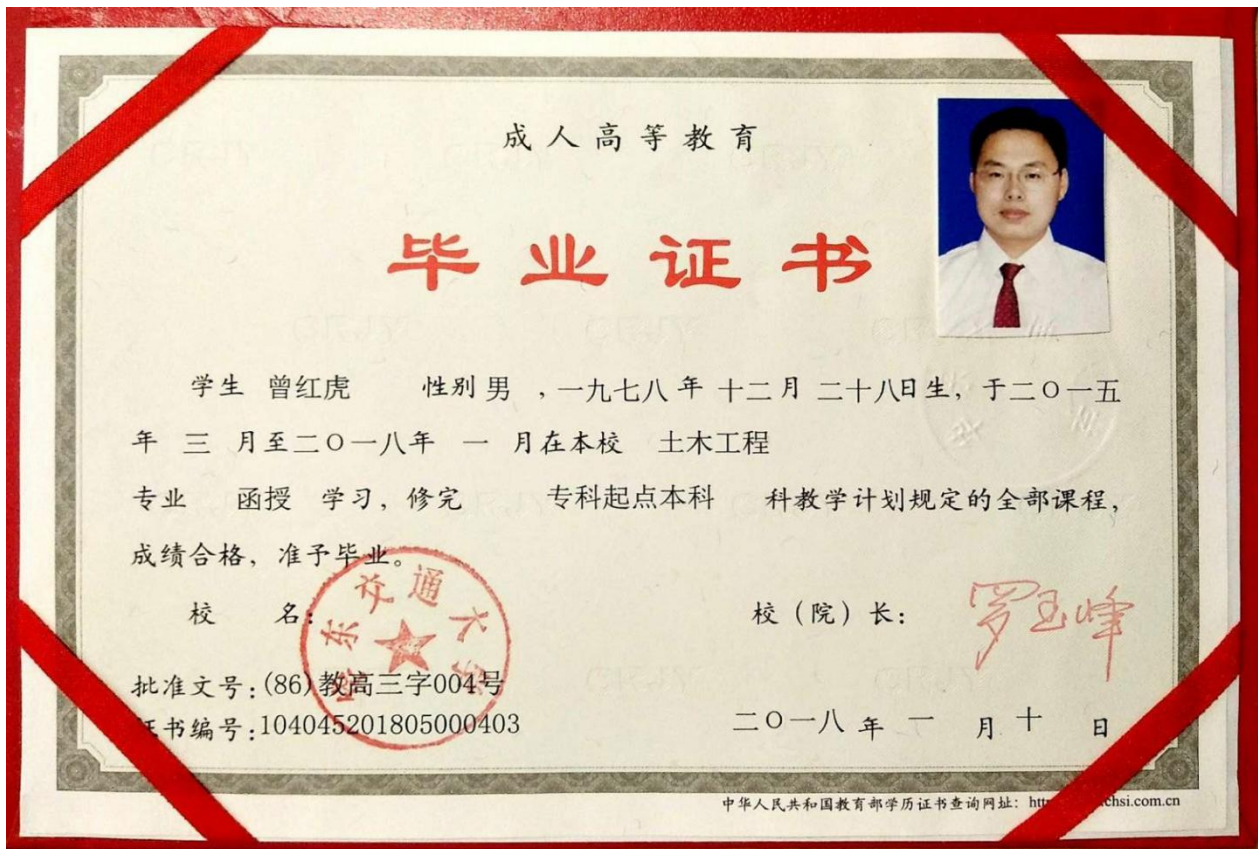 成人高等教育
毕业证书
学生 曾红虎 性别 男 ，一九七八 年 十二 月 二十八 日生，于二〇一五
年 三 月至二〇一八年 一 月在本校 土木工程
专业 函授 学习，修完 专科起点本科 科教学计划规定的全部课程，
成绩合格，准予毕业。
校 名：
华东交通大学
校（院）长：
罗玉峰
批准文号：(86)教高三字004号
证书编号：104045201805000403
二〇一八 年 一 月 十 日
中华人民共和国教育部学历证书查询网址：htt chsi.com.cn